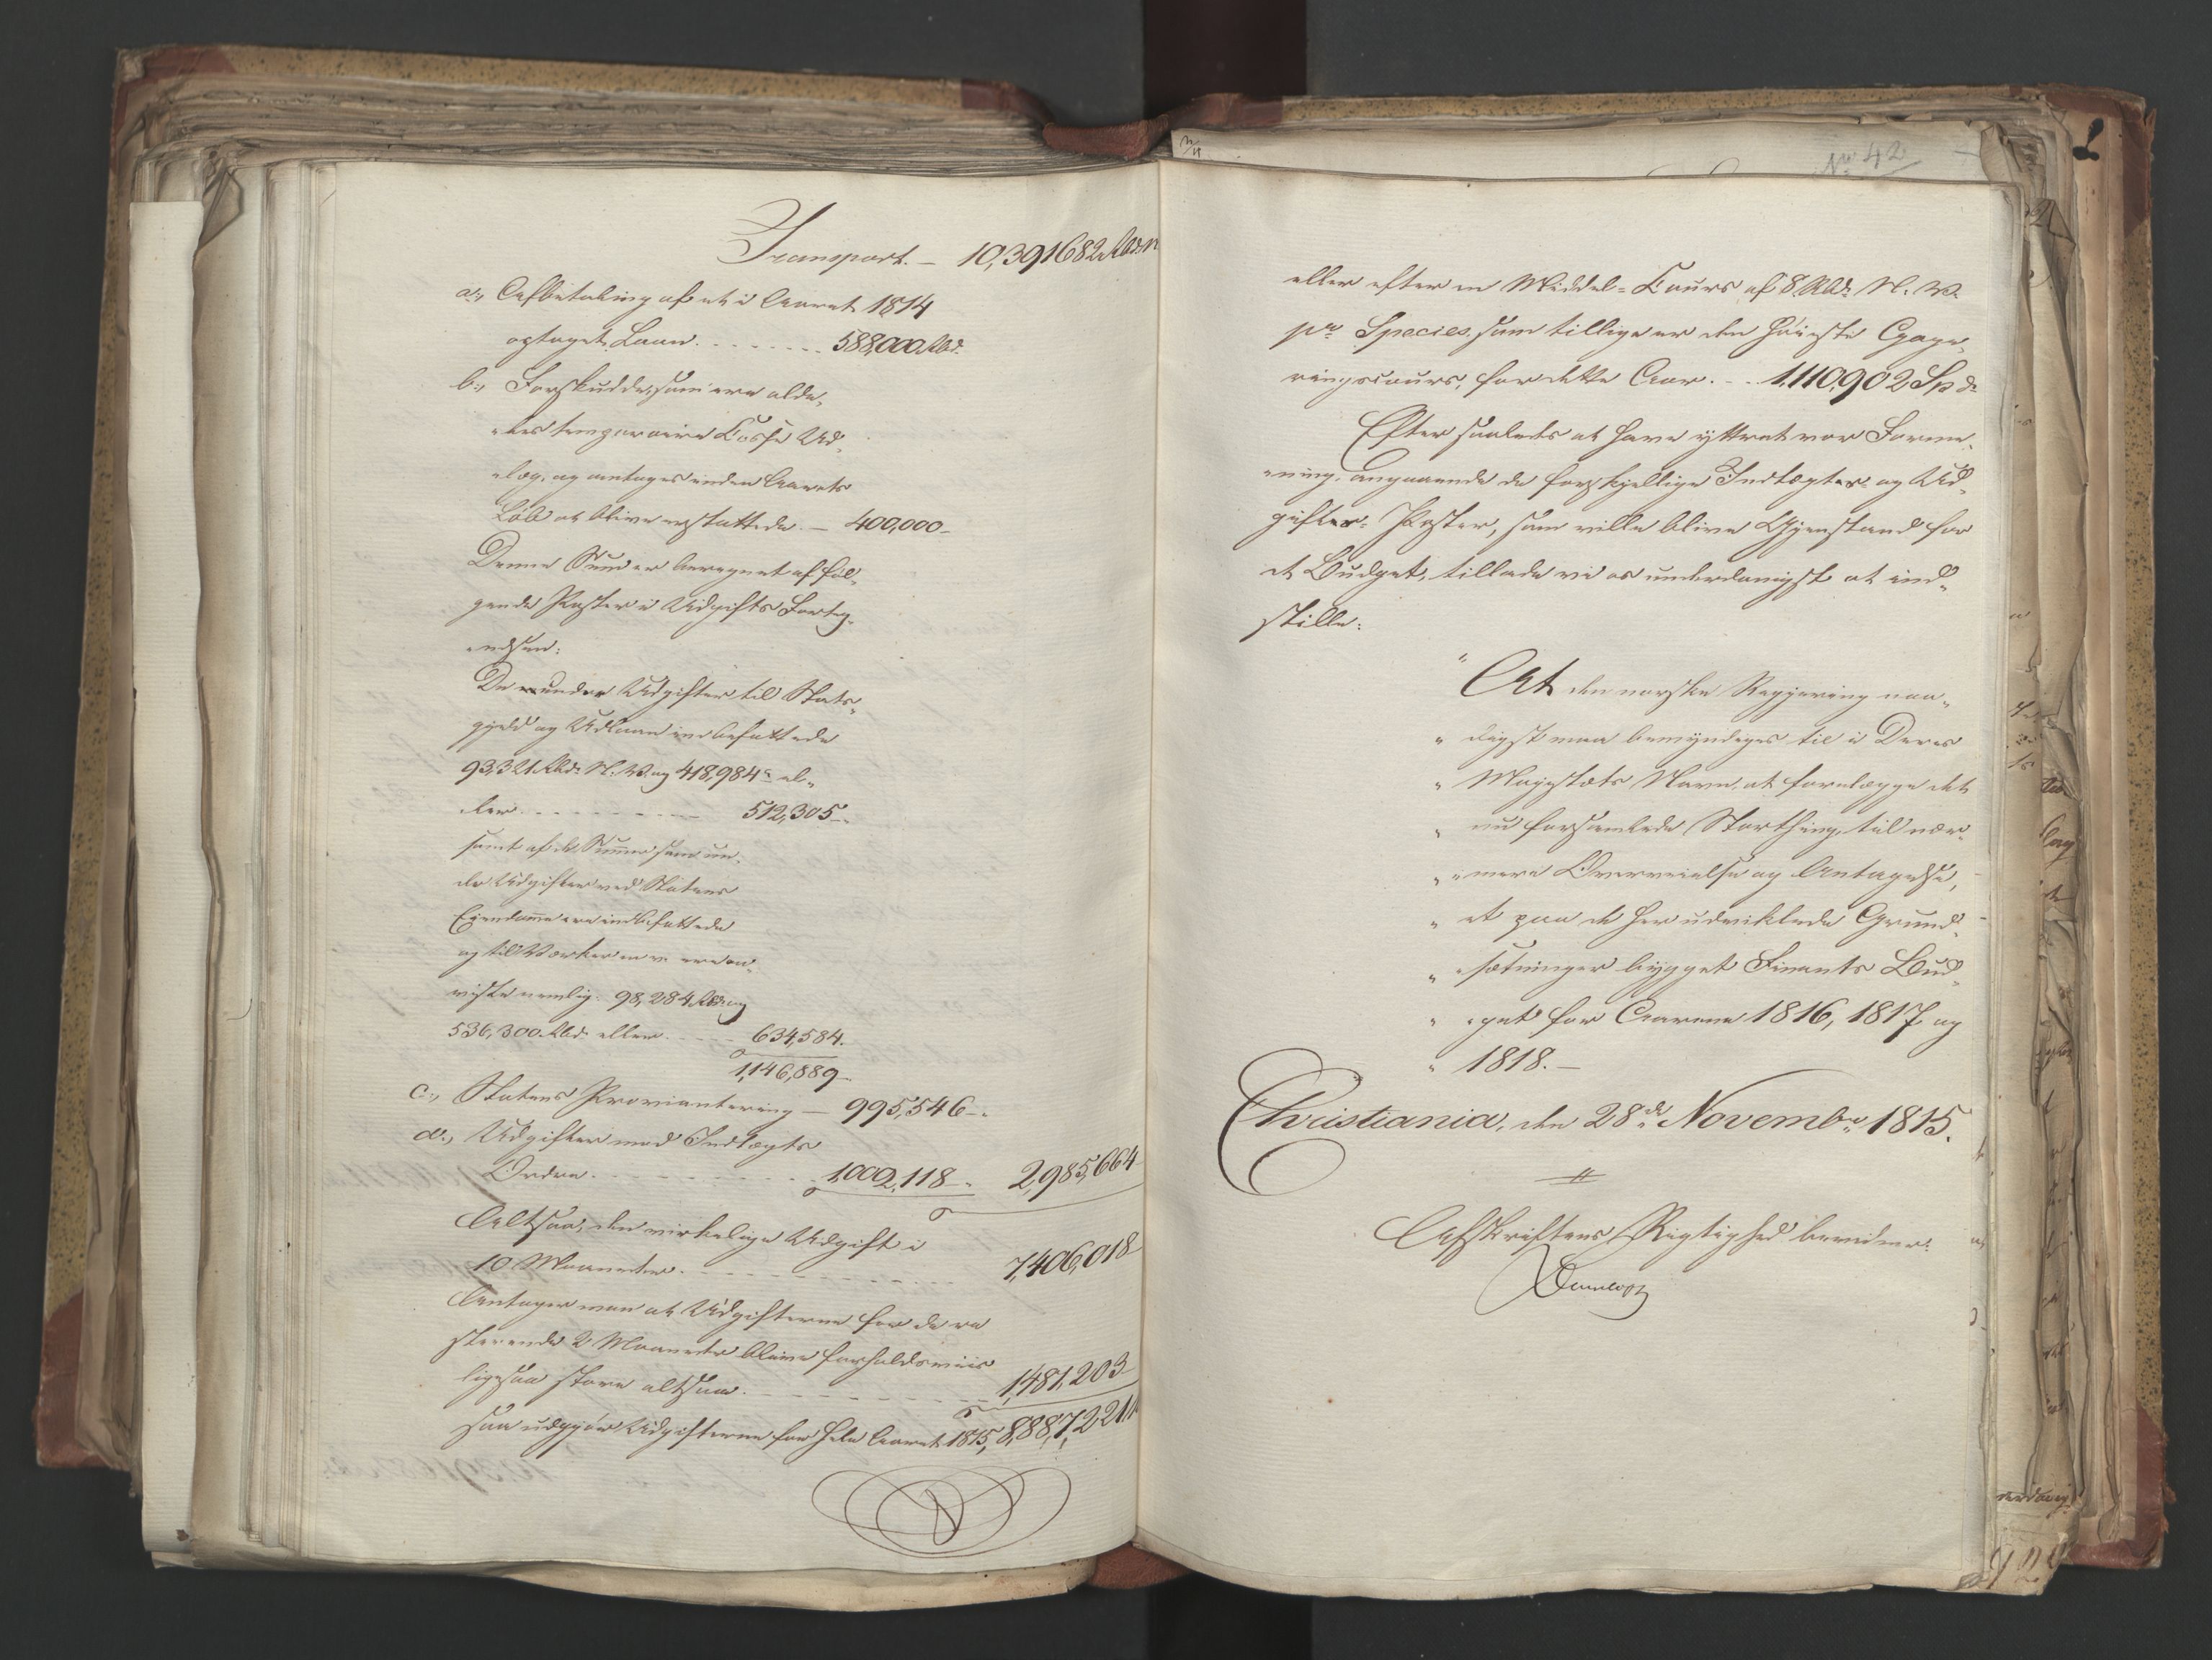 Transport. – 10,391682 Rbd. N
a., Afbetaling af et i Aaret 1814
optaget Laan. . . . . . . . 588,000 Rbd.
b., Forskudde, som ere alde„
„les temporaire Cassa Ud„
„læg, og antages inden Aarets
Løb at blive erstattede. – 400,000 –
Denne Sum er beregnet af føl„
gende Poster i Udgifts Forteg„
„nelsen:
De under Udgifter til Stats„
gjeld og Udlaan indbefattede
93,321 Rbd. N. V. og 418,984 – el„
„ler . . . . . . . . . . 512,305 –
samt af de Summer som un„
der Udgifter ved Statens
Eiendomme ere indbefattede
og til Værkerne ere an„
viste nemlig: 98,284 Rbd. og
536,300 Rbd. eller . . . . 634,584.
1,146,889 –
c., Statens Proviantering – 995,546 –
d., Udgifter med Indtægts
Ordre. . . . . . . . . . . 1,002,118 – 2,985,664
Altsaa, den virkelige Udgift i
10 Maaneder. . . . . . . . . . . . 7,406,018
Antager man at Udgifterne for de re
sterende 2 Maaneder blive forholdsviis
ligesaa store altsaa. . . . . . . . . . 1,481,203
saa udgjør Udgifterne for hele Aaret 1815, 8,887,221
No. 42
eller efter en Middel-Cours af 8 Rbd. N. V.
pr. Species, som tillige er den høieste
ringscours, for dette Aar. . . 1,110,902 Spd.
Efter saaledes at have yttret vor Forme„
„ning, angaaende de forskjellige Indtægter og Ud„
gifter-Poster, som ville blive Gjenstand for
et Budget, tillade vi os underdanigst at ind„
stille:
„ At den norske Regjering naa„
„ digst maa bemyndiges til i Deres
„ Majestæts Navn, at forelægge det
„ nu forsamlede Storthing, til nær„
„ „mere Overveielse og Antagelse,
„ et paa de her udviklede Grund„
„ „sætninger bygget Finants Bud„
„ „get for Aarene 1816, 1817 og
„ 1818. –
Christiania, den 28de Novembr 1815.
Afskriftens Rigtighed bevidner: